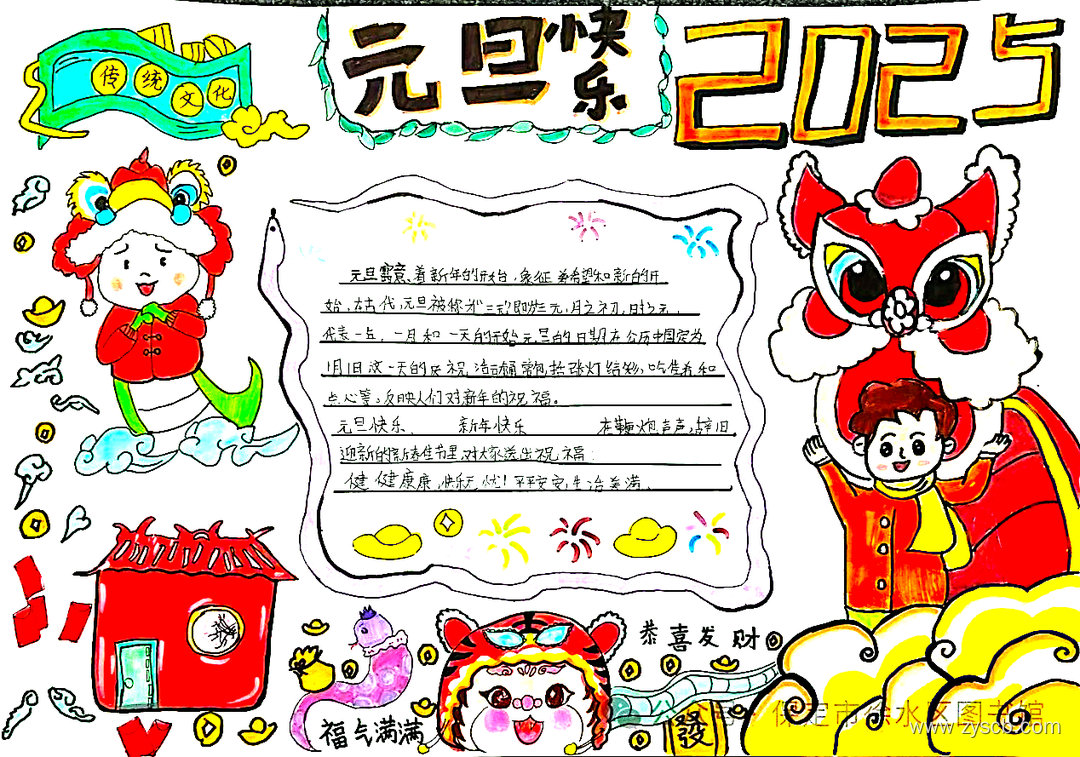 传统文化
元旦快乐
2025
元旦寓意着新年的开始，象征着希望和新的开
始，在古代，元旦被称为"三元"即岁之元，月之初，时之元
代表一点、一月和一天的开始元旦的日期在公历中国定为
1月1日这一天的庆祝活动
张灯结彩，吃
和
点心等，反映人们对新年的祝福。
元旦快乐、 新年快乐 在鞭炮声声，辞旧
迎新的新春佳节里，对大家送出祝福：
健健康康，快乐无忧！平平安安，生活美满、
恭喜发财
福气满满
發
保定市徐水区图书馆
www.zyscb.com